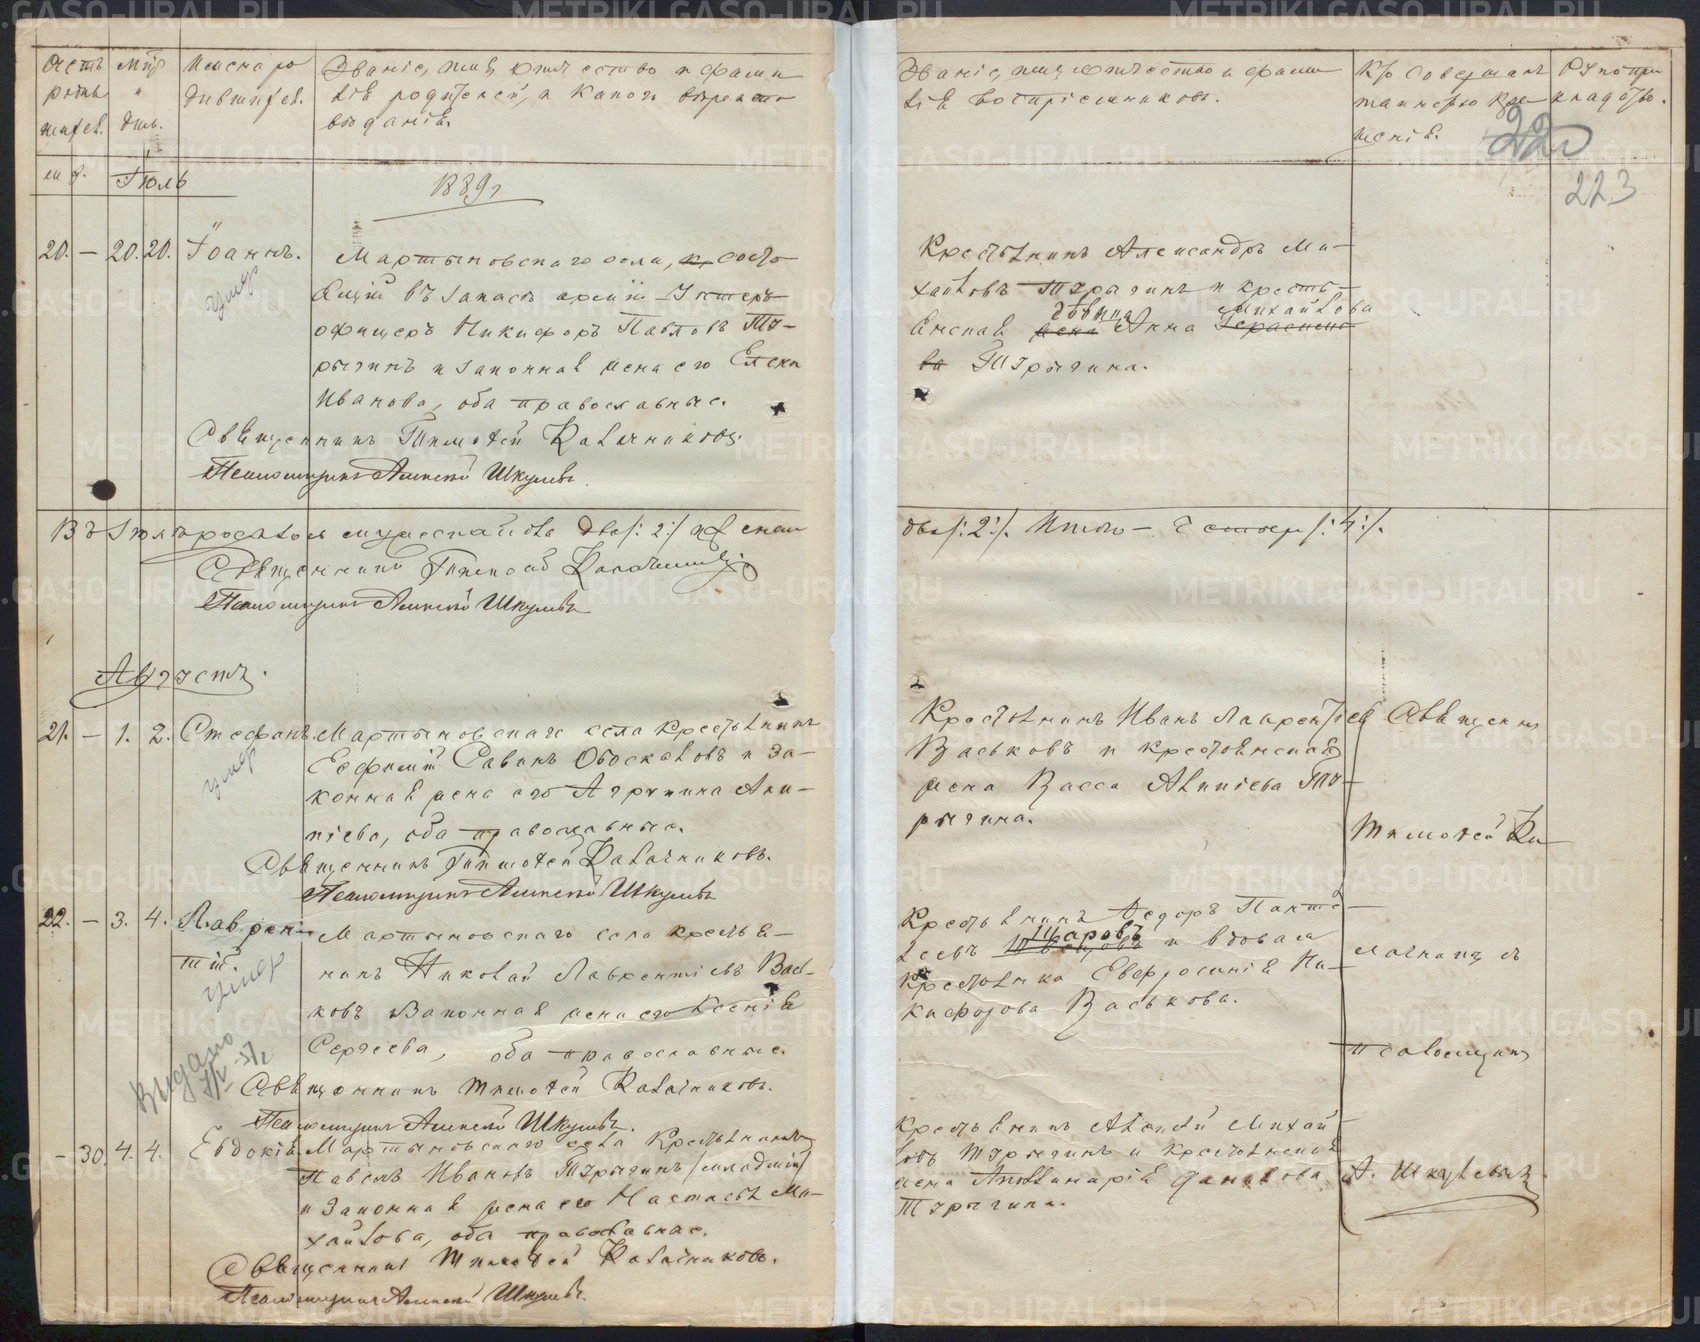 Счетъ родившихся.
Мѣсяцъ и день.
Имена родившихся.
Званіе, имя, отчество и фамилія родителей, и какого вѣроисповѣданія.
Званіе, имя, отчество и фамилія воспріемниковъ.
Кто совершалъ таинство крещенія.
Рукоприкладство.
220
223
м. ж.
Іюль
1889 г.
20. — 20. 20. Іоаннъ.
Мартыновскаго села, состо
ящій въ запасѣ арміи Унтеръ
офицеръ Никифоръ Павловъ Ту-
рыгинъ и законная жена его Елена
Иванова, оба православные.
Священникъ Тимофей Калачниковъ.
Псаломщикъ Алексѣй Шкулевъ.
Крестьянинъ Александръ Ми-
хайловъ Турыгинъ и кресть-
янская дѣвица Анна Михайлова
Турыгина.
умер
Въ Іюлѣ родилось мужескаго пола два /:2:/ женск
два /:2:/. Итого — четыре /:4:/.
Священникъ Тимофей Калачниковъ
Псаломщикъ Алексѣй Шкулевъ
Августъ.
21. — 1. 2. Стефанъ.
Мартыновскаго села крестьянинъ
Евфимій Саввинъ и за-
конная жена его Агрипина Али-
піева, оба православные.
умер
Священникъ Тимофей Калачниковъ.
Псаломщикъ Алексѣй Шкулевъ
Крестьянинъ Иванъ Лаврентіевъ
Васьковъ и крестьянская
жена Васса Алипіева Ту-
рыгина.
22. — 3. 4. Лаврен-
тій.
Мартыновскаго села крестья-
нинъ Николай Лаврентіевъ Вась-
ковъ и законная жена его Ксенія
Сергѣева, оба православные.
умер
Выдано
Священникъ Тимофей Калачниковъ.
Псаломщикъ Алексѣй Шкулевъ.
Крестьянинъ Ѳедоръ Панте-
леевъ Шаровъ и вдовая
крестьянка Евфросинія Ни-
кифорова Васькова.
— 30. 4. 4. Евдокія.
Мартыновскаго села Крестьянинъ
Павелъ Ивановъ Турыгинъ /младшій/
и законная жена его Настасья Ми-
хайлова, оба православные.
Священникъ Тимофей Калачниковъ.
Псаломщикъ Алексѣй Шкулевъ.
Крестьянинъ Алексѣй Михай-
ловъ Турыгинъ и крестьянская
жена Аполлинарія Данилова
Турыгина.
Священникъ
Тимофей Ка-
лачниковъ
Псаломщикъ
А. Шкулевъ.
METRIKI.GASO-URAL.RU